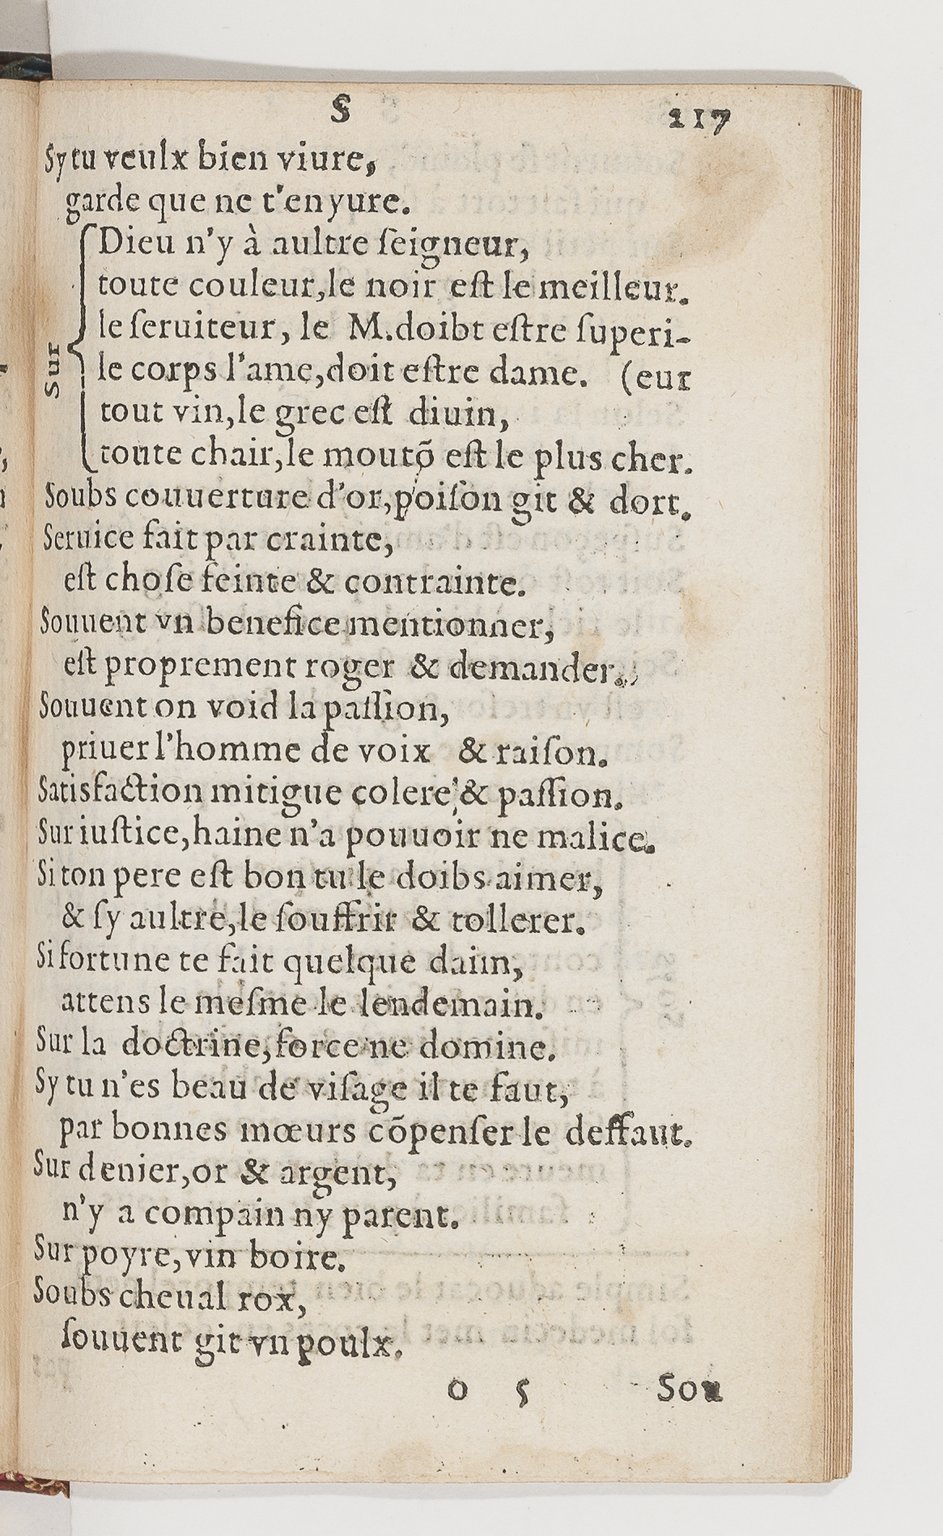 S 217
Sy tu veulx bien viure,
garde que ne t'enyure.
Sur
Dieu n'y à aultre ſeigneur,
toute couleur, le noir eſt le meilleur.
le ſeruiteur, le M. doibt eſtre ſuperi-
le corps l'ame, doit eſtre dame. (eur
tout vin, le grec eſt diuin,
toute chair, le moutõ eſt le plus cher.
Soubs couuerture d'or, poiſon git & dort.
Seruice fait par crainte,
eſt choſe feinte & contrainte.
Souuent vn benefice mentionner,
eſt proprement roger & demander.
Souuent on void la paſſion,
priuer l'homme de voix & raiſon.
Satisfaction mitigue colere & paſſion.
Sur iuſtice, haine n'a pouuoir ne malice.
Si ton pere eſt bon tu le doibs aimer,
& ſy aultre, le souffrir & tollerer.
Si fortune te fait quelque daim,
attens le meſme le lendemain.
Sur la doctrine, force ne domine.
Sy tu n'es beau de viſage il te faut,
par bonnes mœurs cõpenſer le deffaut.
Sur denier, or & argent,
n'y a compain ny parent.
Sur poyre, vin boire.
Soubs cheual rox,
ſouuent git vn poulx.
O 5 Sou